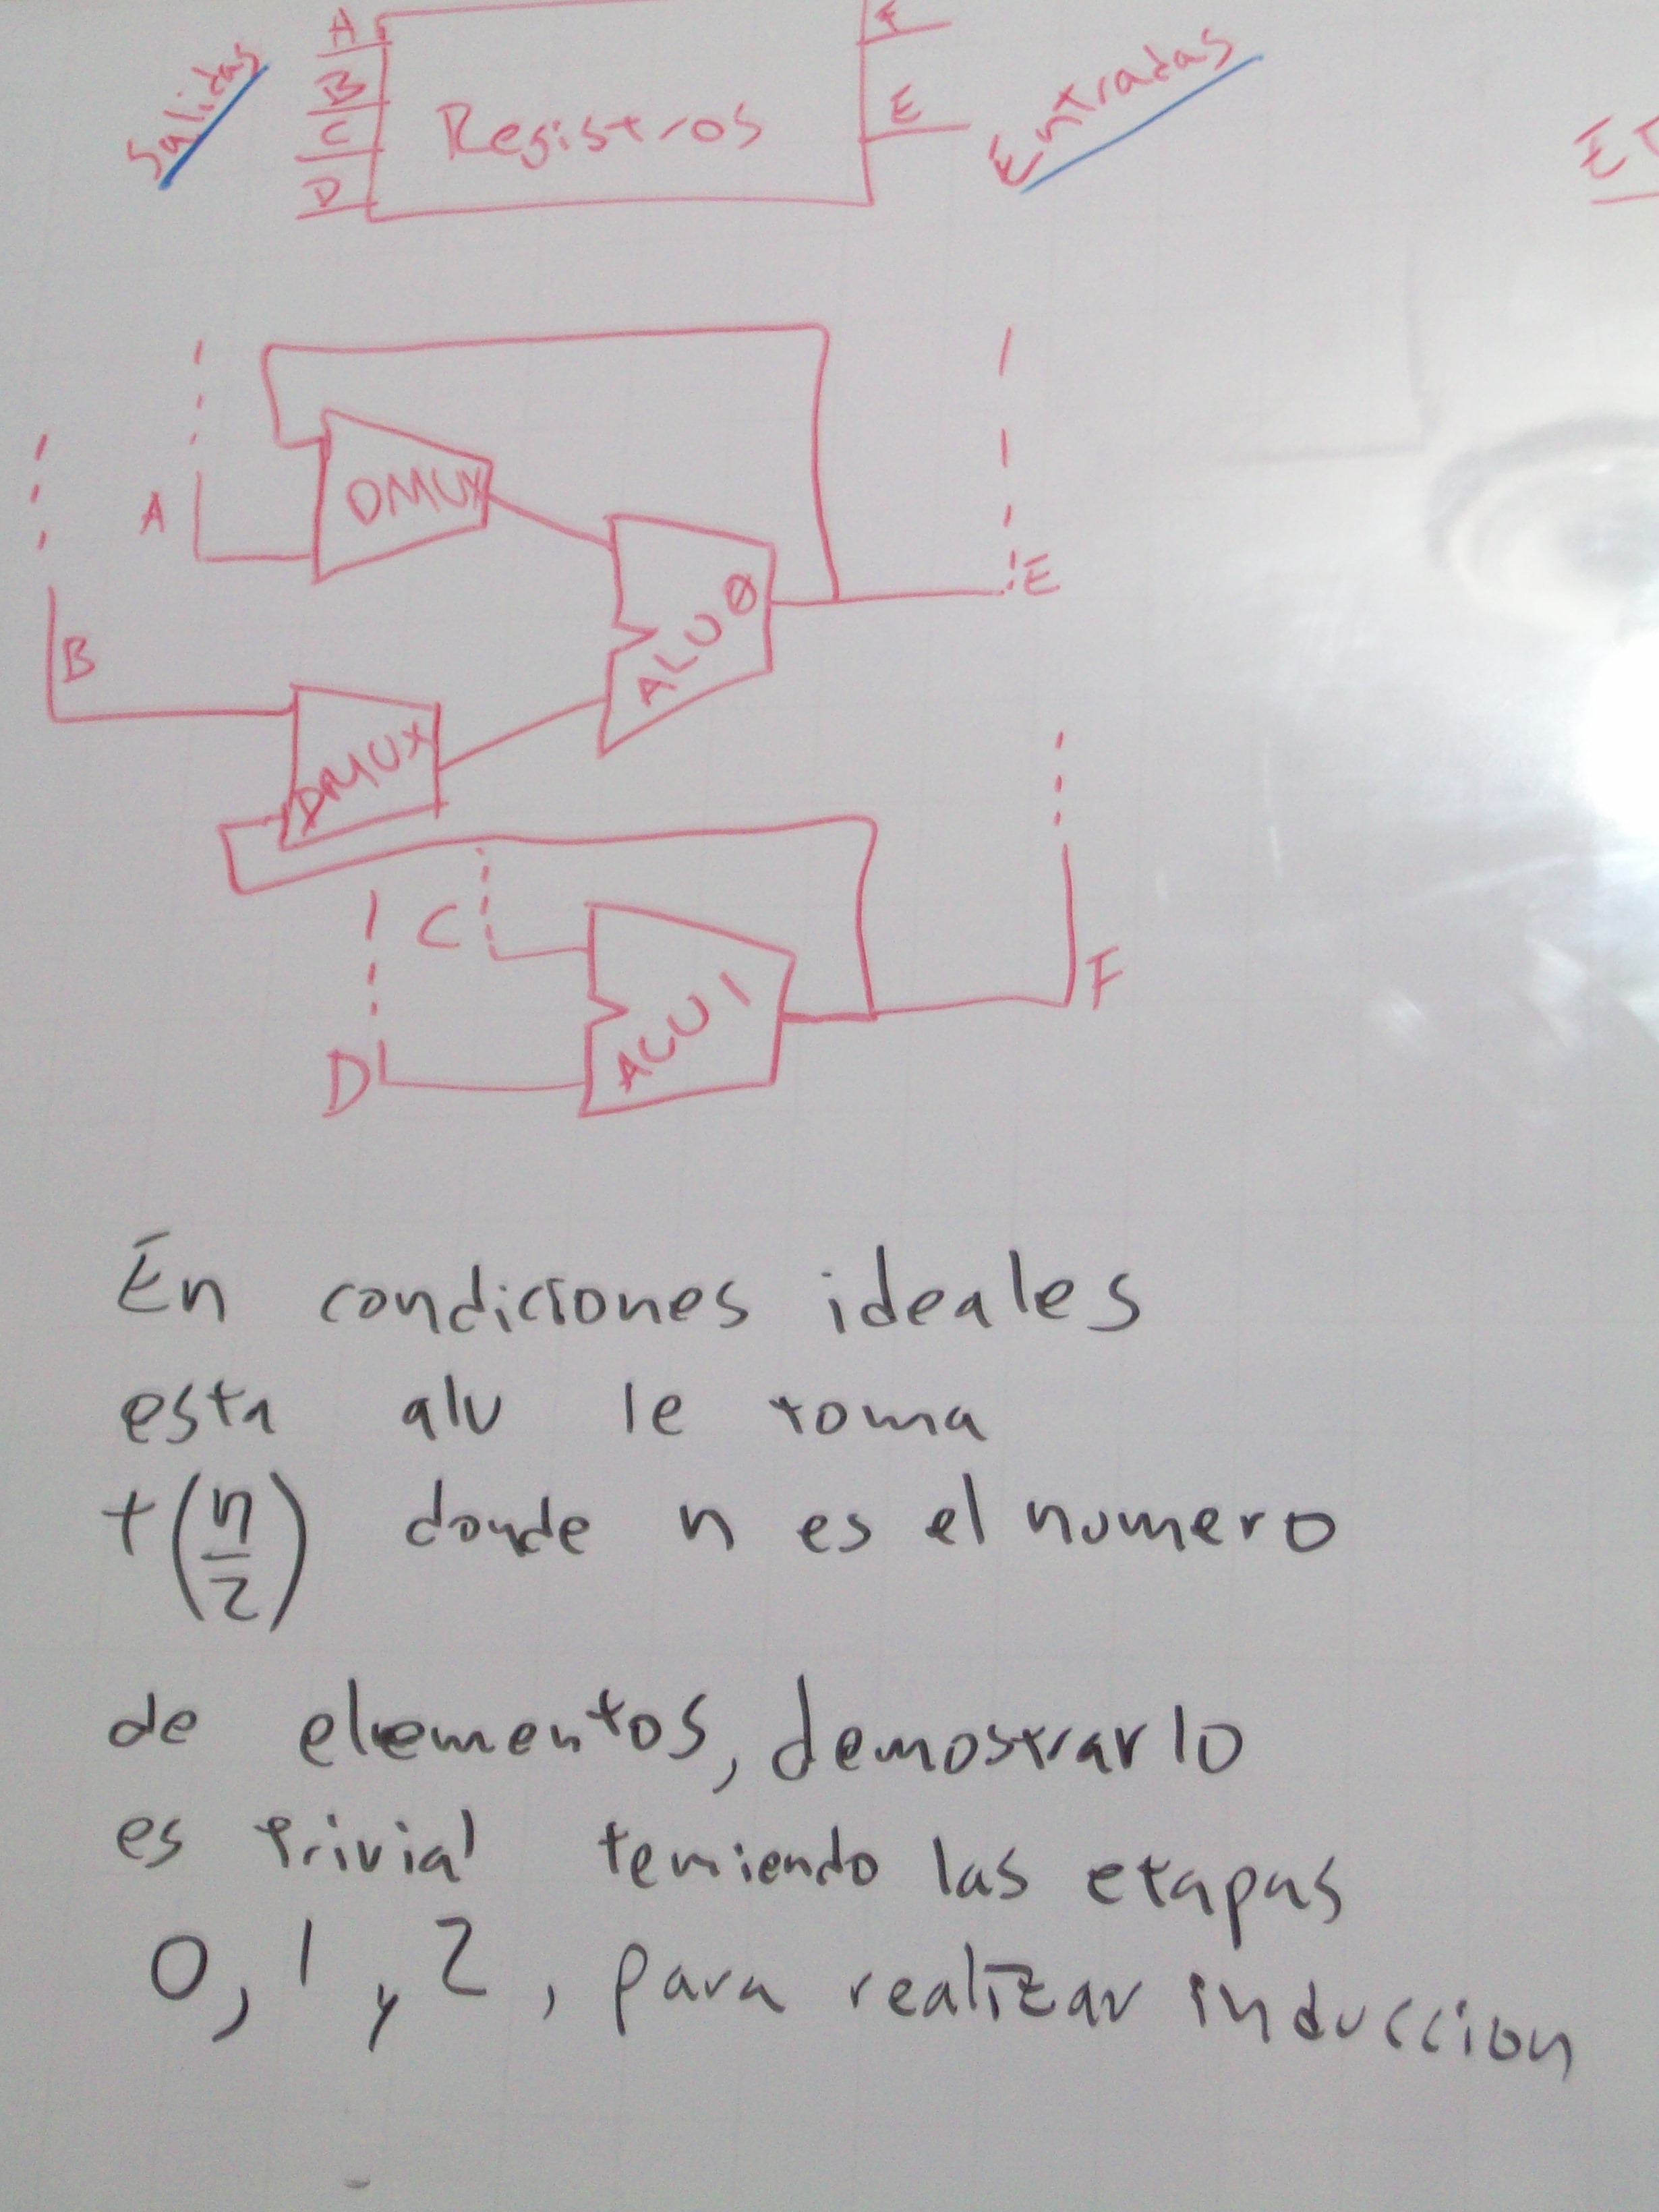 A
B
C
D
Salidas
Registros
F
E
Entradas
A
DMUX
ALU 0
E
B
DMUX
C
ALU 1
F
D
En condiciones ideales
esta alu le toma
t(n/2) donde n es el numero
de elementos, demostrarlo
es trivial teniendo las etapas
0, 1 y 2, para realizar induccion